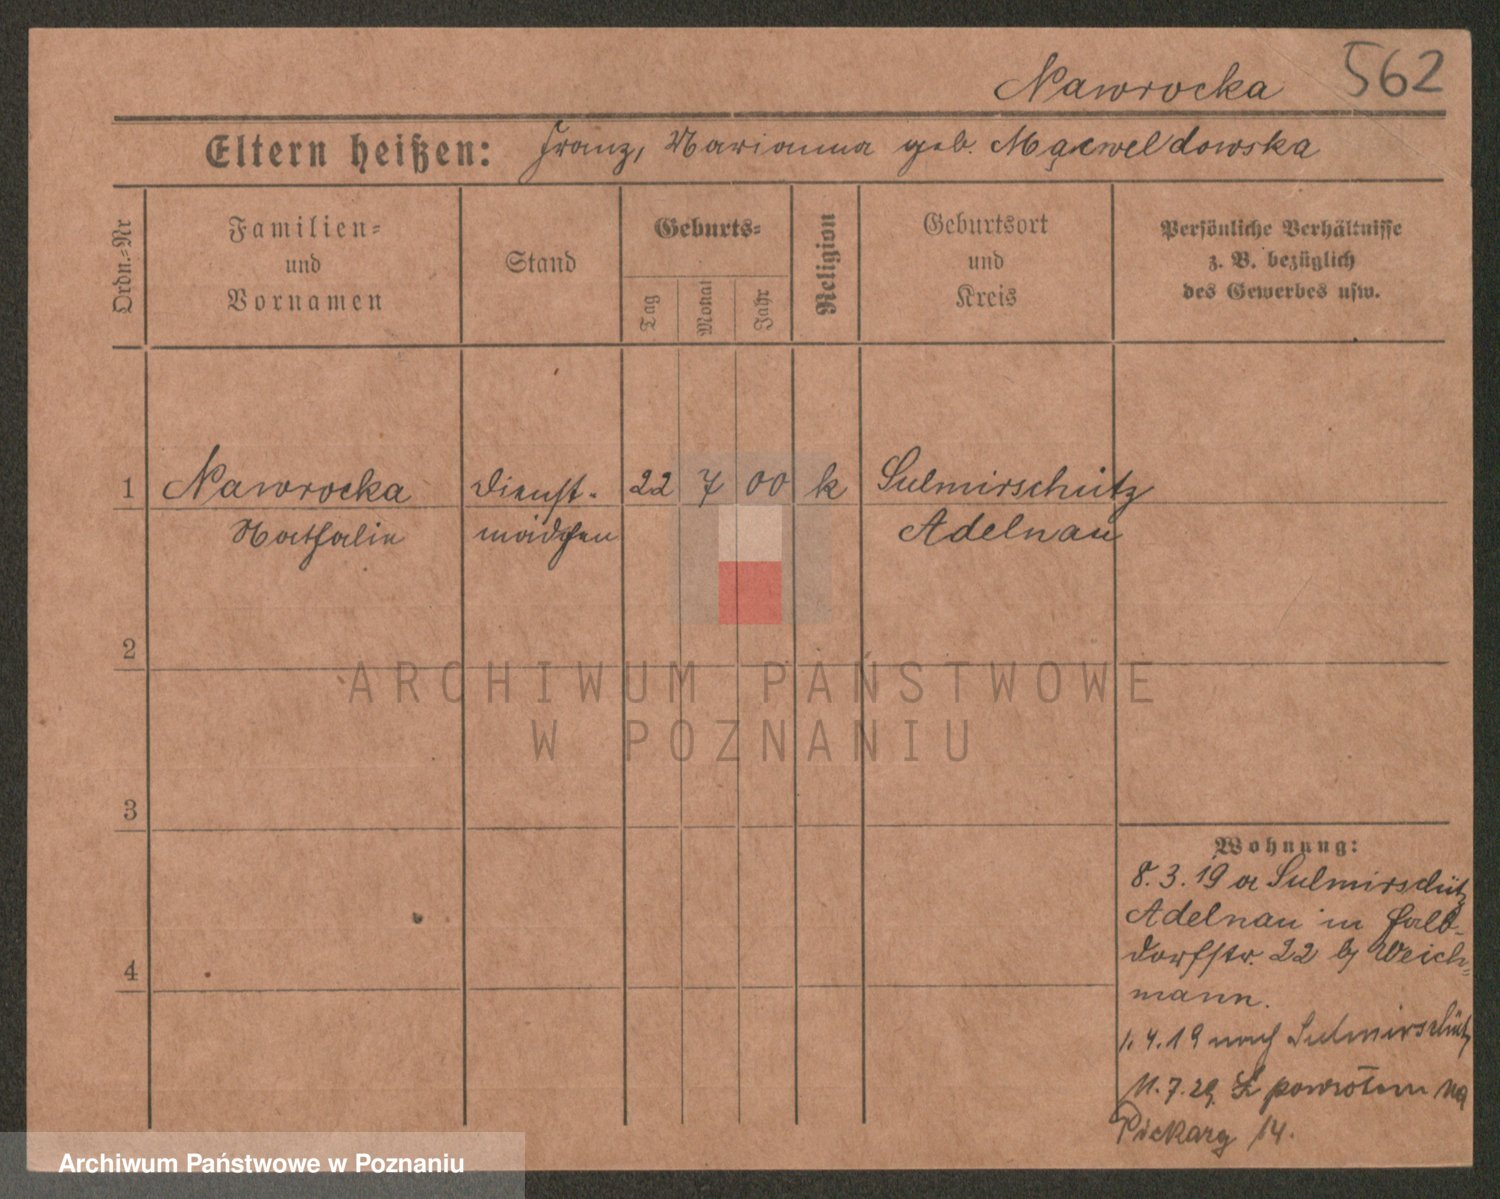 Nawrocka 562
Eltern heißen: Franz, Marianna geb.
Ordn.-Nr
Familien-
und
Vornamen
Stand
Geburts-
Tag
Monat
Jahr
Religion
Geburtsort
und
Kreis
Persönliche Verhältnisse
z. B. bezüglich
des Gewerbes usw.
1 Nawrocka Dienst- 22 7 00 k Sulmirschütz
Nathalie mädchen Adelnau
2
3
4
Wohnung:
8.3.19 a Sulmirschütz
Adelnau in Halb-
dorfstr. 22 b/ Weich-
mann.
1.4.19 nach Sulmirschütz
11.7.29. Z powrotem na
Piekary 14.
ARCHIWUM PAŃSTWOWE
W POZNANIU
Archiwum Państwowe w Poznaniu